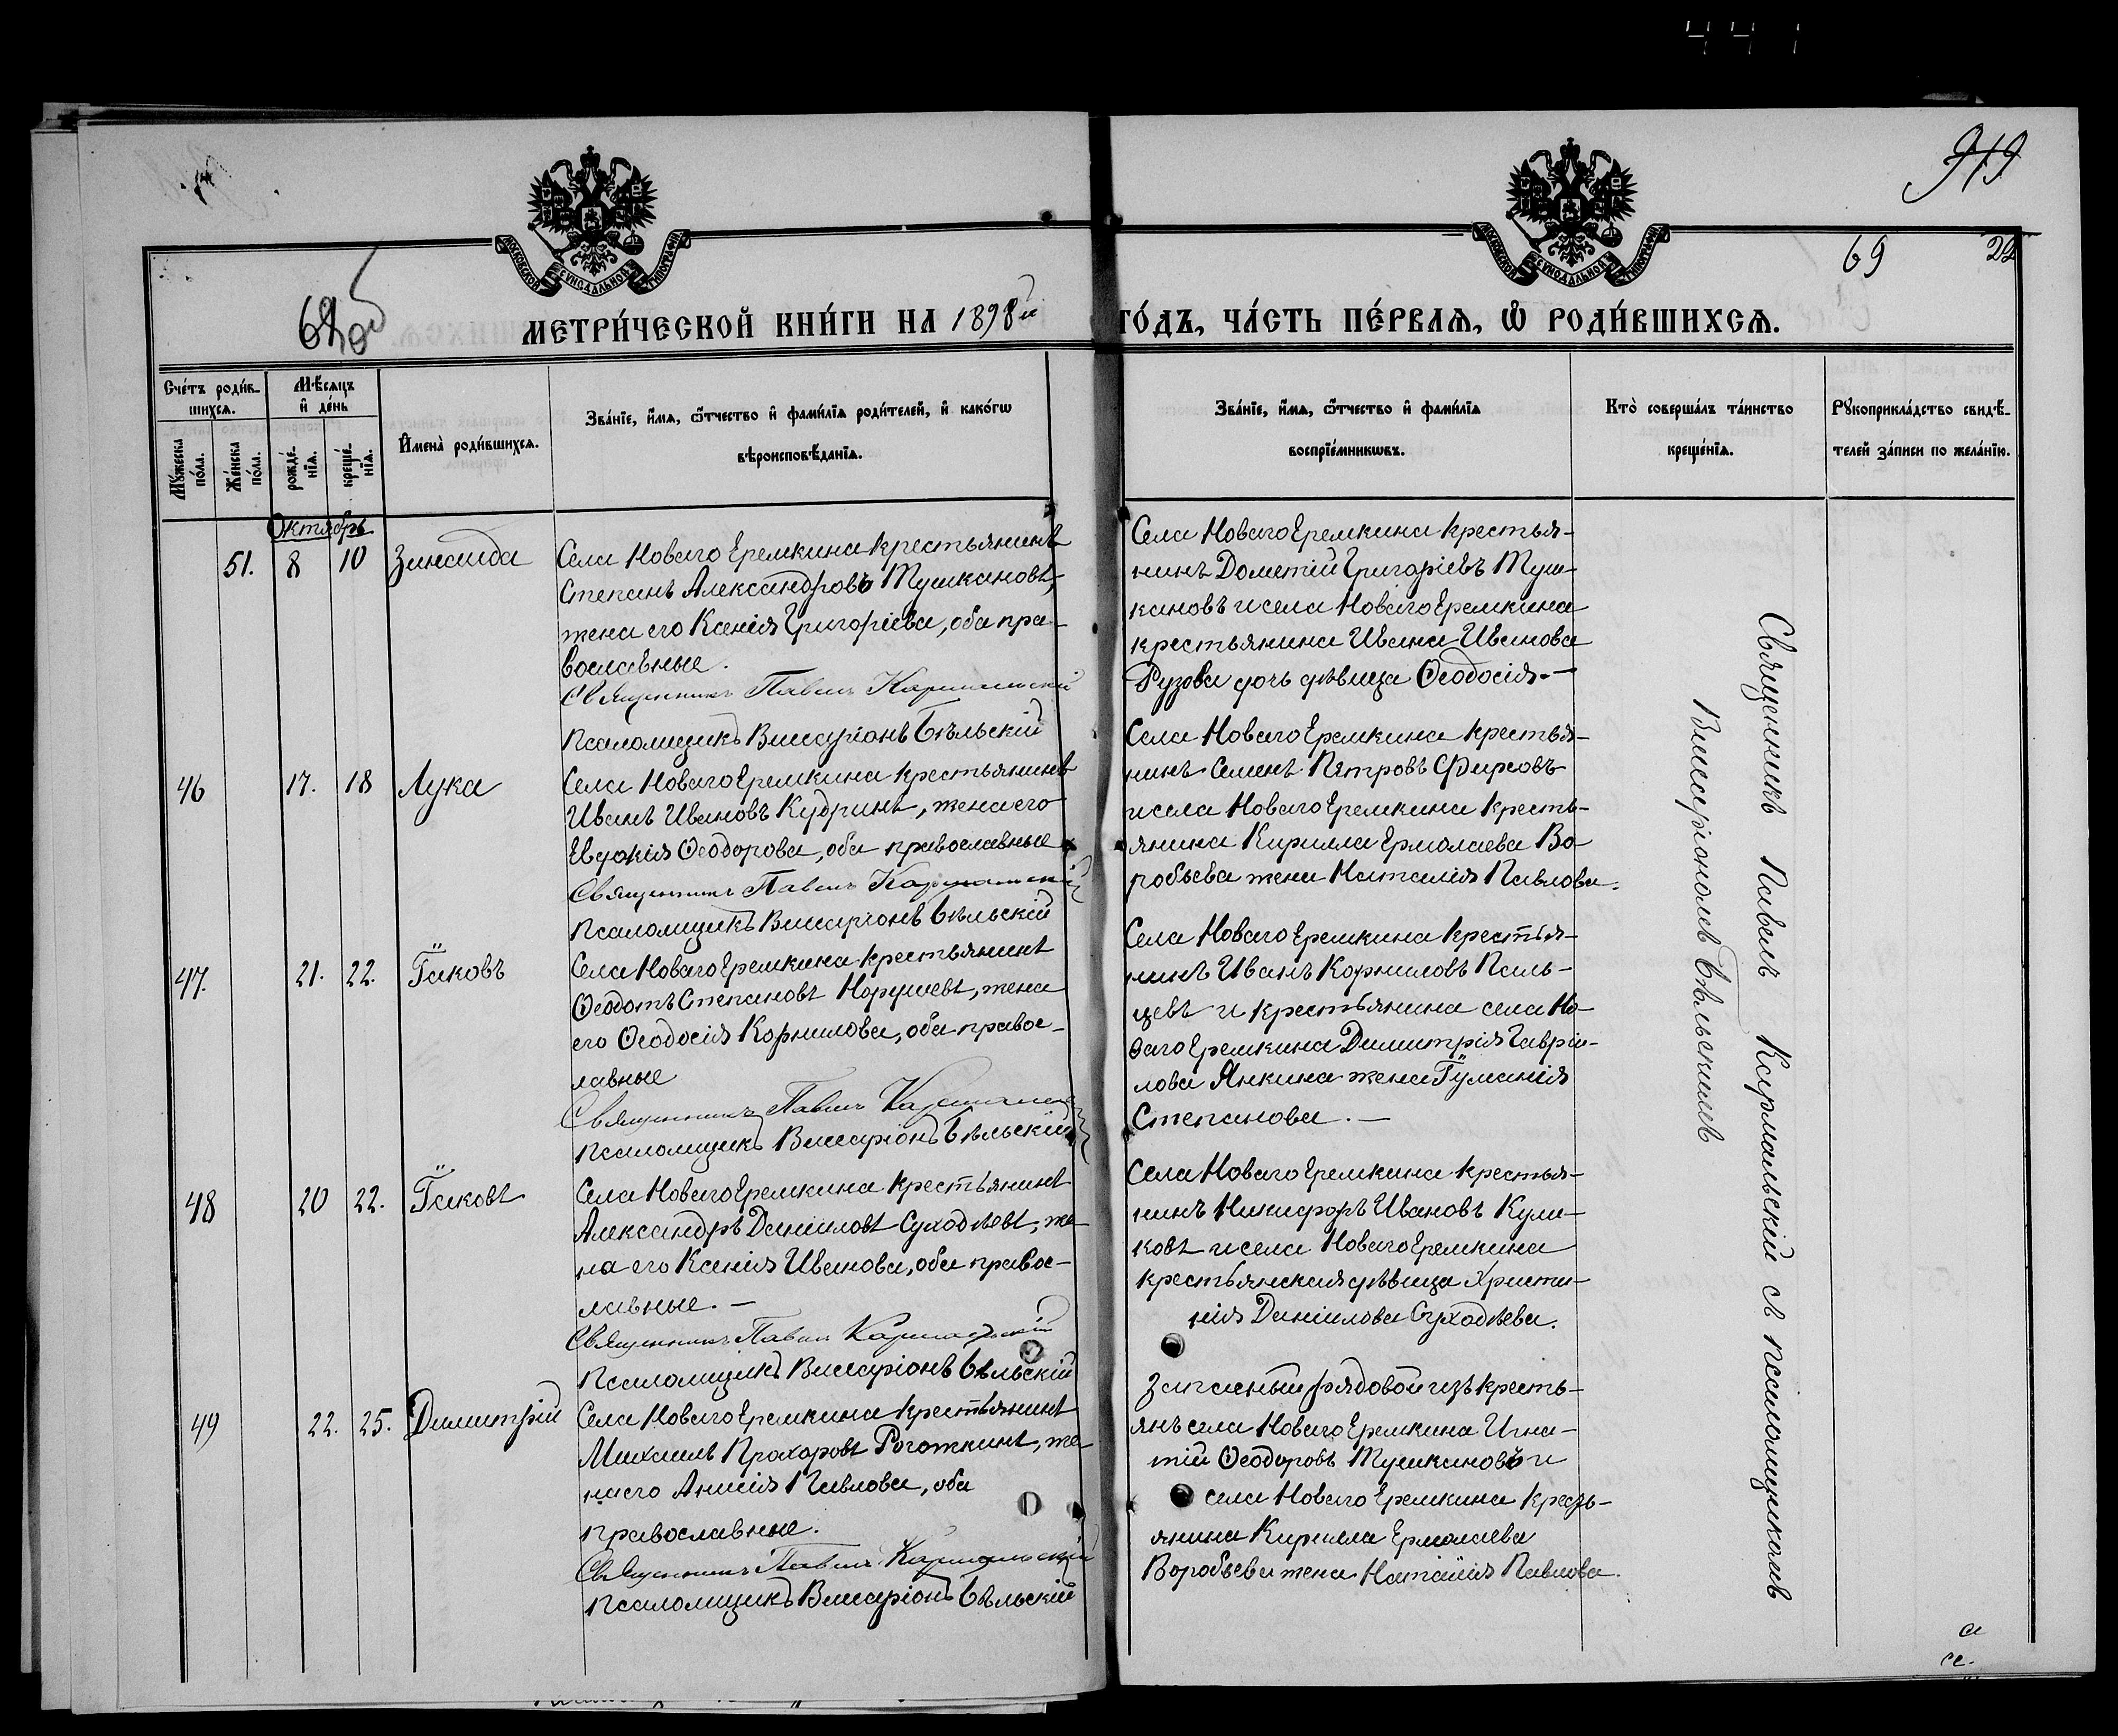 441
919
69
68об
МОСКОВСКОЙ СѴНОДАЛЬНОЙ ТИПОГРАФІИ
МОСКОВСКОЙ СѴНОДАЛЬНОЙ ТИПОГРАФІИ
МЕТРИ́ЧЕСКОЙ КНИ́ГИ НА 1898й ГО́ДЪ, ЧА́СТЬ ПЕ́РВАЯ, Ѡ РОДИ́ВШИХСЯ.
Сче́тъ роди́в-
шихся.
Мѣ́сяцъ
и де́нь
Му́жеска
по́ла.
Же́нска
по́ла.
рожде́-
нїя.
креще́-
нїя.
Имена̀ роди́вшихся.
Зва́нїе, и́мя, ѻ҆́тчество и фами́лїя роди́телей, и како́гѡ
вѣроисповѣ́данїя.
Зва́нїе, и́мя, ѻ҆́тчество и фами́лїя
воспрїе́мникѡвъ.
Кто̀ соверша́лъ та́инство
креще́нїя.
Рꙋкоприкла́дство свидѣ́-
телей за́писи по жела́нїю.
Октябрь
51. 8 10 Зинаида
Села Новаго Еремкина крестьянинъ
Степанъ Александровъ Тушкановъ,
жена его Ксенія Григоріева, оба пра-
вославные.
Священникъ Павелъ Кармальскій
Псаломщикъ Виссаріонъ Бѣльскій
Села Новаго Еремкина крестья-
нинъ Дометій Григаріевъ Туш-
кановъ и села Новаго Еремкина
крестьянина Ивана Иванова
Рузова дочь дѣвица Ѳеодосія.-
46 17. 18 Лука
Села Новаго Еремкина крестьянинъ
Иванъ Ивановъ Кудринъ, жена его
Евдокія Ѳеодорова, оба православные
Священникъ Павелъ Кармальскій
Псаломщикъ Виссаріонъ Бѣльскій
Села Новаго Еремкина крестья-
нинъ Семенъ Петровъ Фирсовъ
и села Новаго Еремкина кресть-
янина Кирилла Ермолаева Во-
робьева жена Наталія Павлова.
47. 21. 22. Іаковъ
Села Новаго Еремкина крестьянинъ
Ѳеодотъ Степановъ Норушевъ, жена
его Ѳеодосія Корнилова, оба правос-
лавные
Священникъ Павелъ Кармальскій
Псаломщикъ Виссаріонъ Бѣльскій
Села Новаго Еремкина крестья-
нинъ Иванъ Корниловъ Паль-
цевъ и крестьянина села Но-
ваго Еремкина Димитрія Гаврии-
лова Янкина жена Іуманія
Степанова.-
48 20 22. Іаковъ
Села Новаго Еремкина крестьянинъ
Александръ Данииловъ Суходѣевъ, же-
на его Ксенія Иванова, оба правос-
лавные.-
Священникъ Павелъ Кармальскій
Псаломщикъ Виссаріонъ Бѣльскій
Села Новаго Еремкина крестья-
нинъ Никифоръ Ивановъ Кули-
ковъ и села Новаго Еремкина
крестьянская дѣвица Христи-
нія Даниилова Суходѣева.
49 22. 25. Димитрій
Села Новаго Еремкина крестьянинъ
Михаилъ Прохоровъ Рогожкинъ, же-
на его Анисія Павлова, оба
православные.
Священникъ Павелъ Кармальскій
Псаломщикъ Виссаріонъ Бѣльскій
Запасный рядовой изъ кресть-
янъ села Новаго Еремкина Игна-
тій Ѳеодоровъ Тушкановъ и
села Новаго Еремкина кресть-
янина Кирилла Ермолаева
Воробьева жена Наталія Павлова.
Священникъ Павелъ Кармальскій съ псаломщикомъ
Виссаріономъ Бѣльскимъ